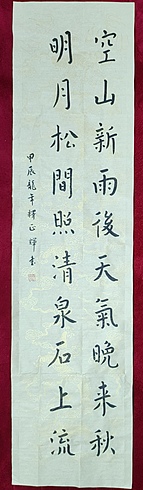 空山新雨後天氣晚来秋
明月松間照清泉石上流
甲辰龍年